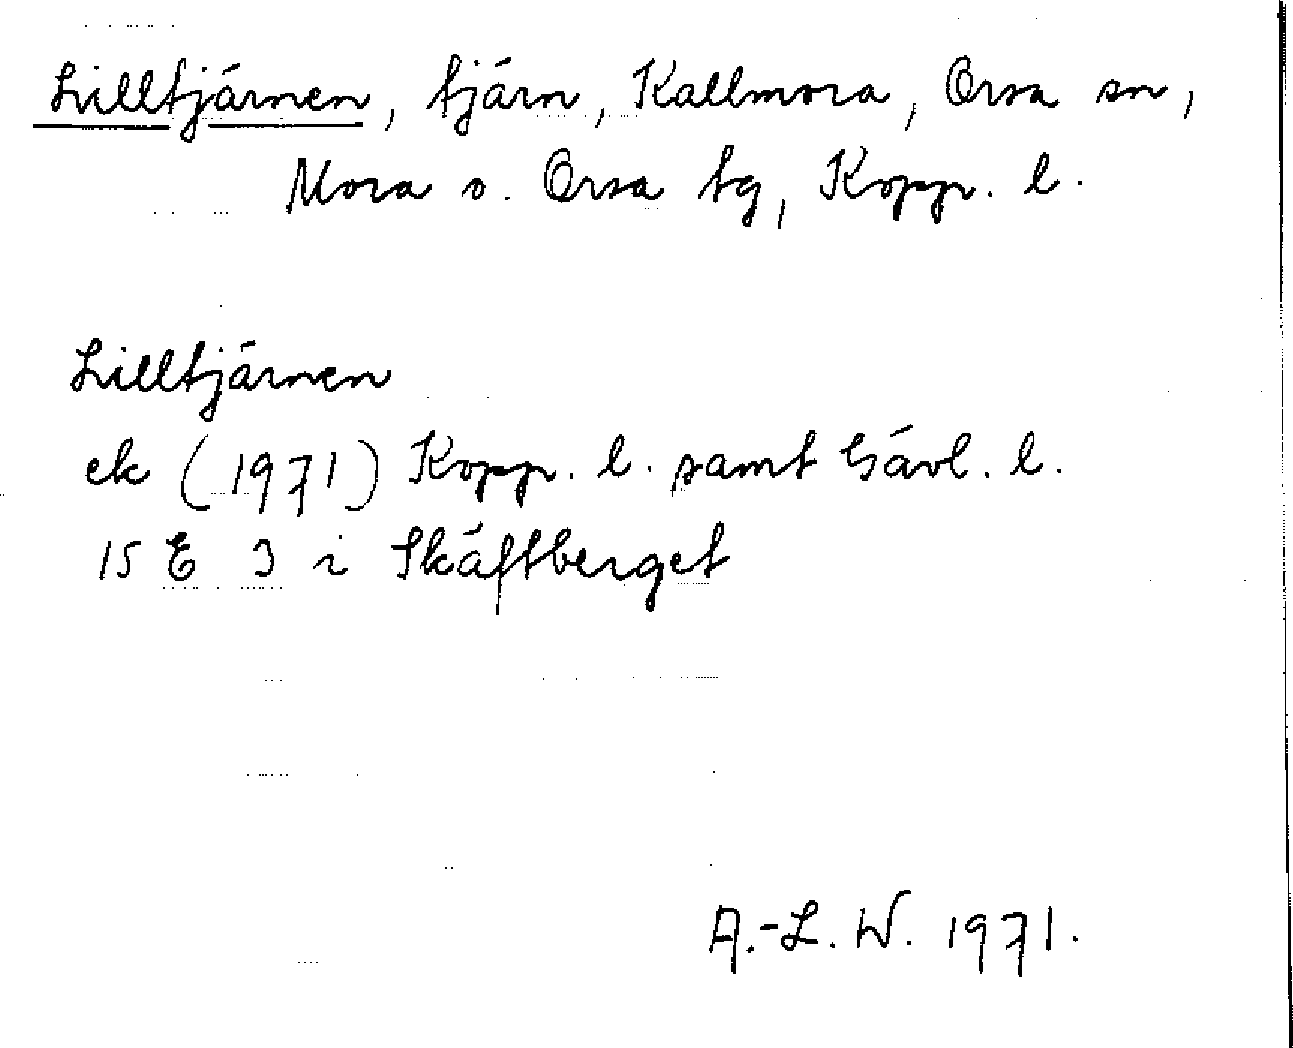 Lilltjärnen, tjärn, Kallmora, Orsa sn,
Mora o. Orsa tg, Kopp. l.
Lilltjärnen
ek (1971) Kopp. l. samt Gävl. l.
15 E 3 i Skäftberget
A.-L. W. 1971.